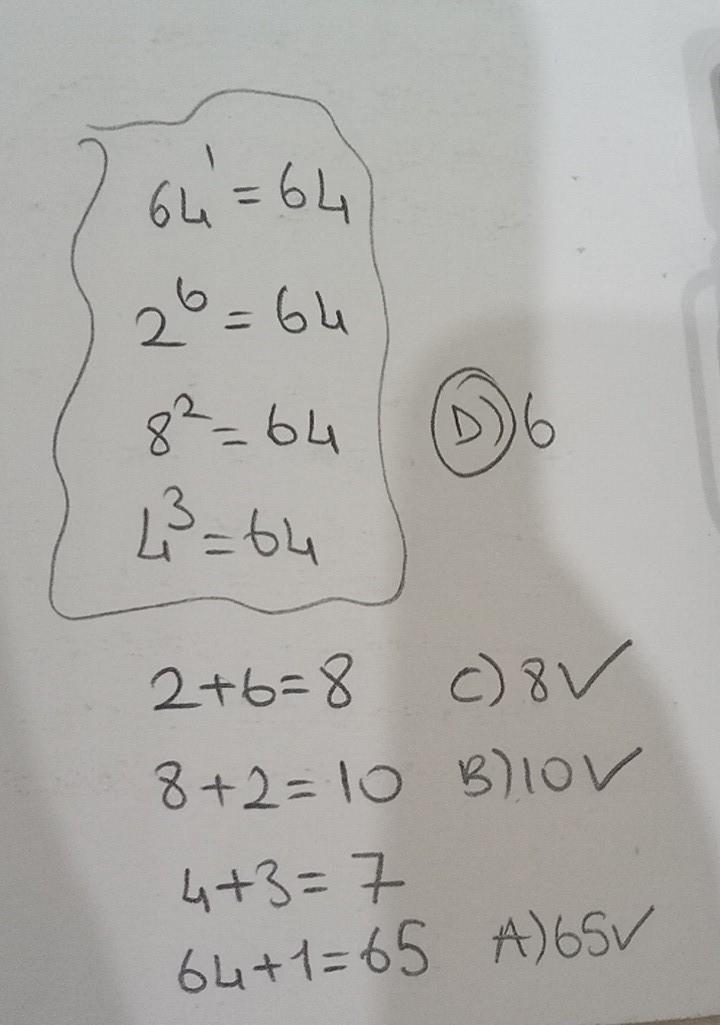 64¹ = 64
2⁶ = 64
8² = 64
D) 6
4³ = 64
2+6=8 C) 8 ✓
8+2=10 B) 10 ✓
4+3=7
64+1=65 A) 65 ✓